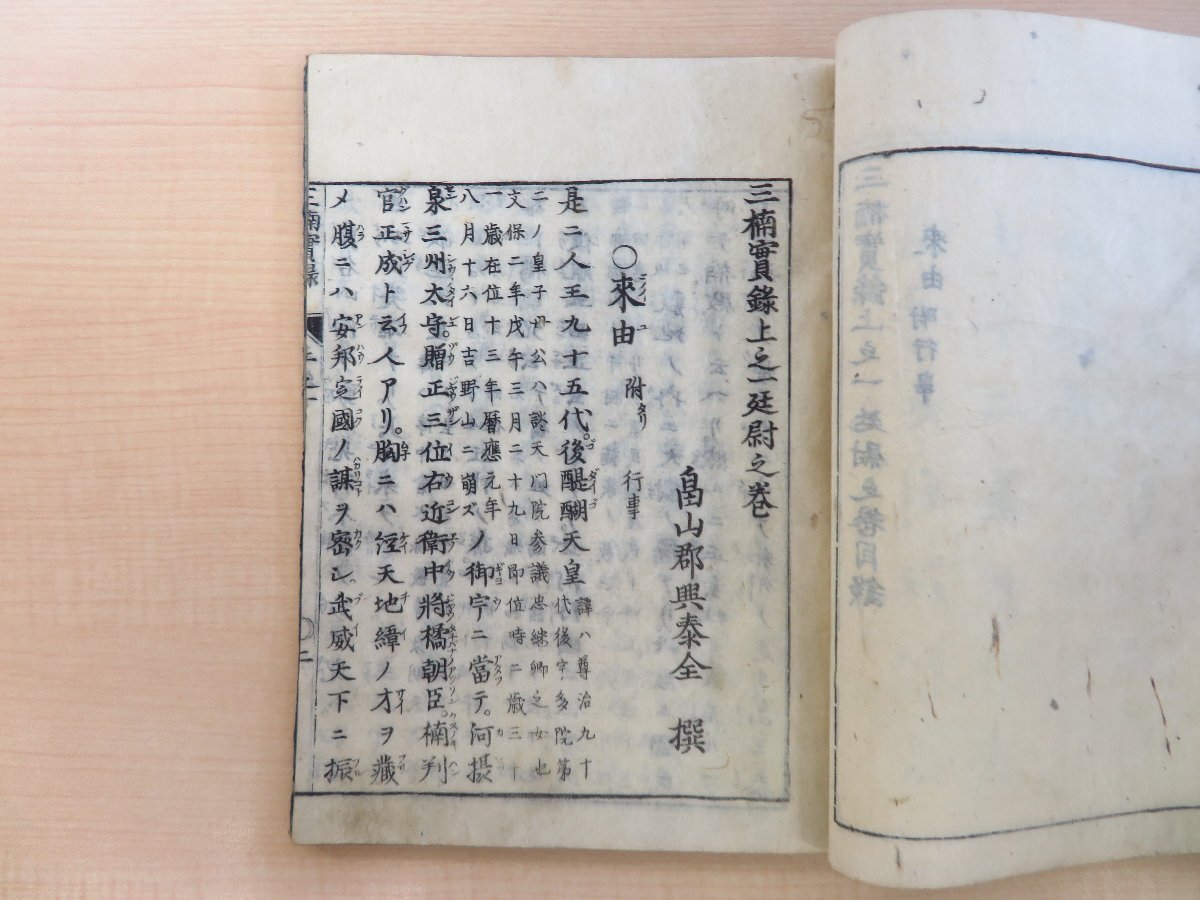 三楠實錄上之一廷尉之卷
畠山郡興泰全 撰
○來由 附 行事
是ニ人王九十五代後醍醐天皇諱ハ尊治九十代後宇多院第
二ノ皇子母公ハ談天門院参議忠継卿之女也
文保二年戊午三月二十九日即位時二歳三十
一歳在位十三年暦應元年
八月十六日吉野山ニ崩ズノ御宇ニ當テ。河摂
泉三州太守。贈正三位右近衛中將橘朝臣。楠判
官正成ト云人アリ。胸ニハ經天地緯ノ才ヲ藏
メ腹ニハ安邦定國ノ謀ヲ密シ。武威天下ニ振
三楠實錄
三楠實錄上之一廷尉之卷目録
來由附行事